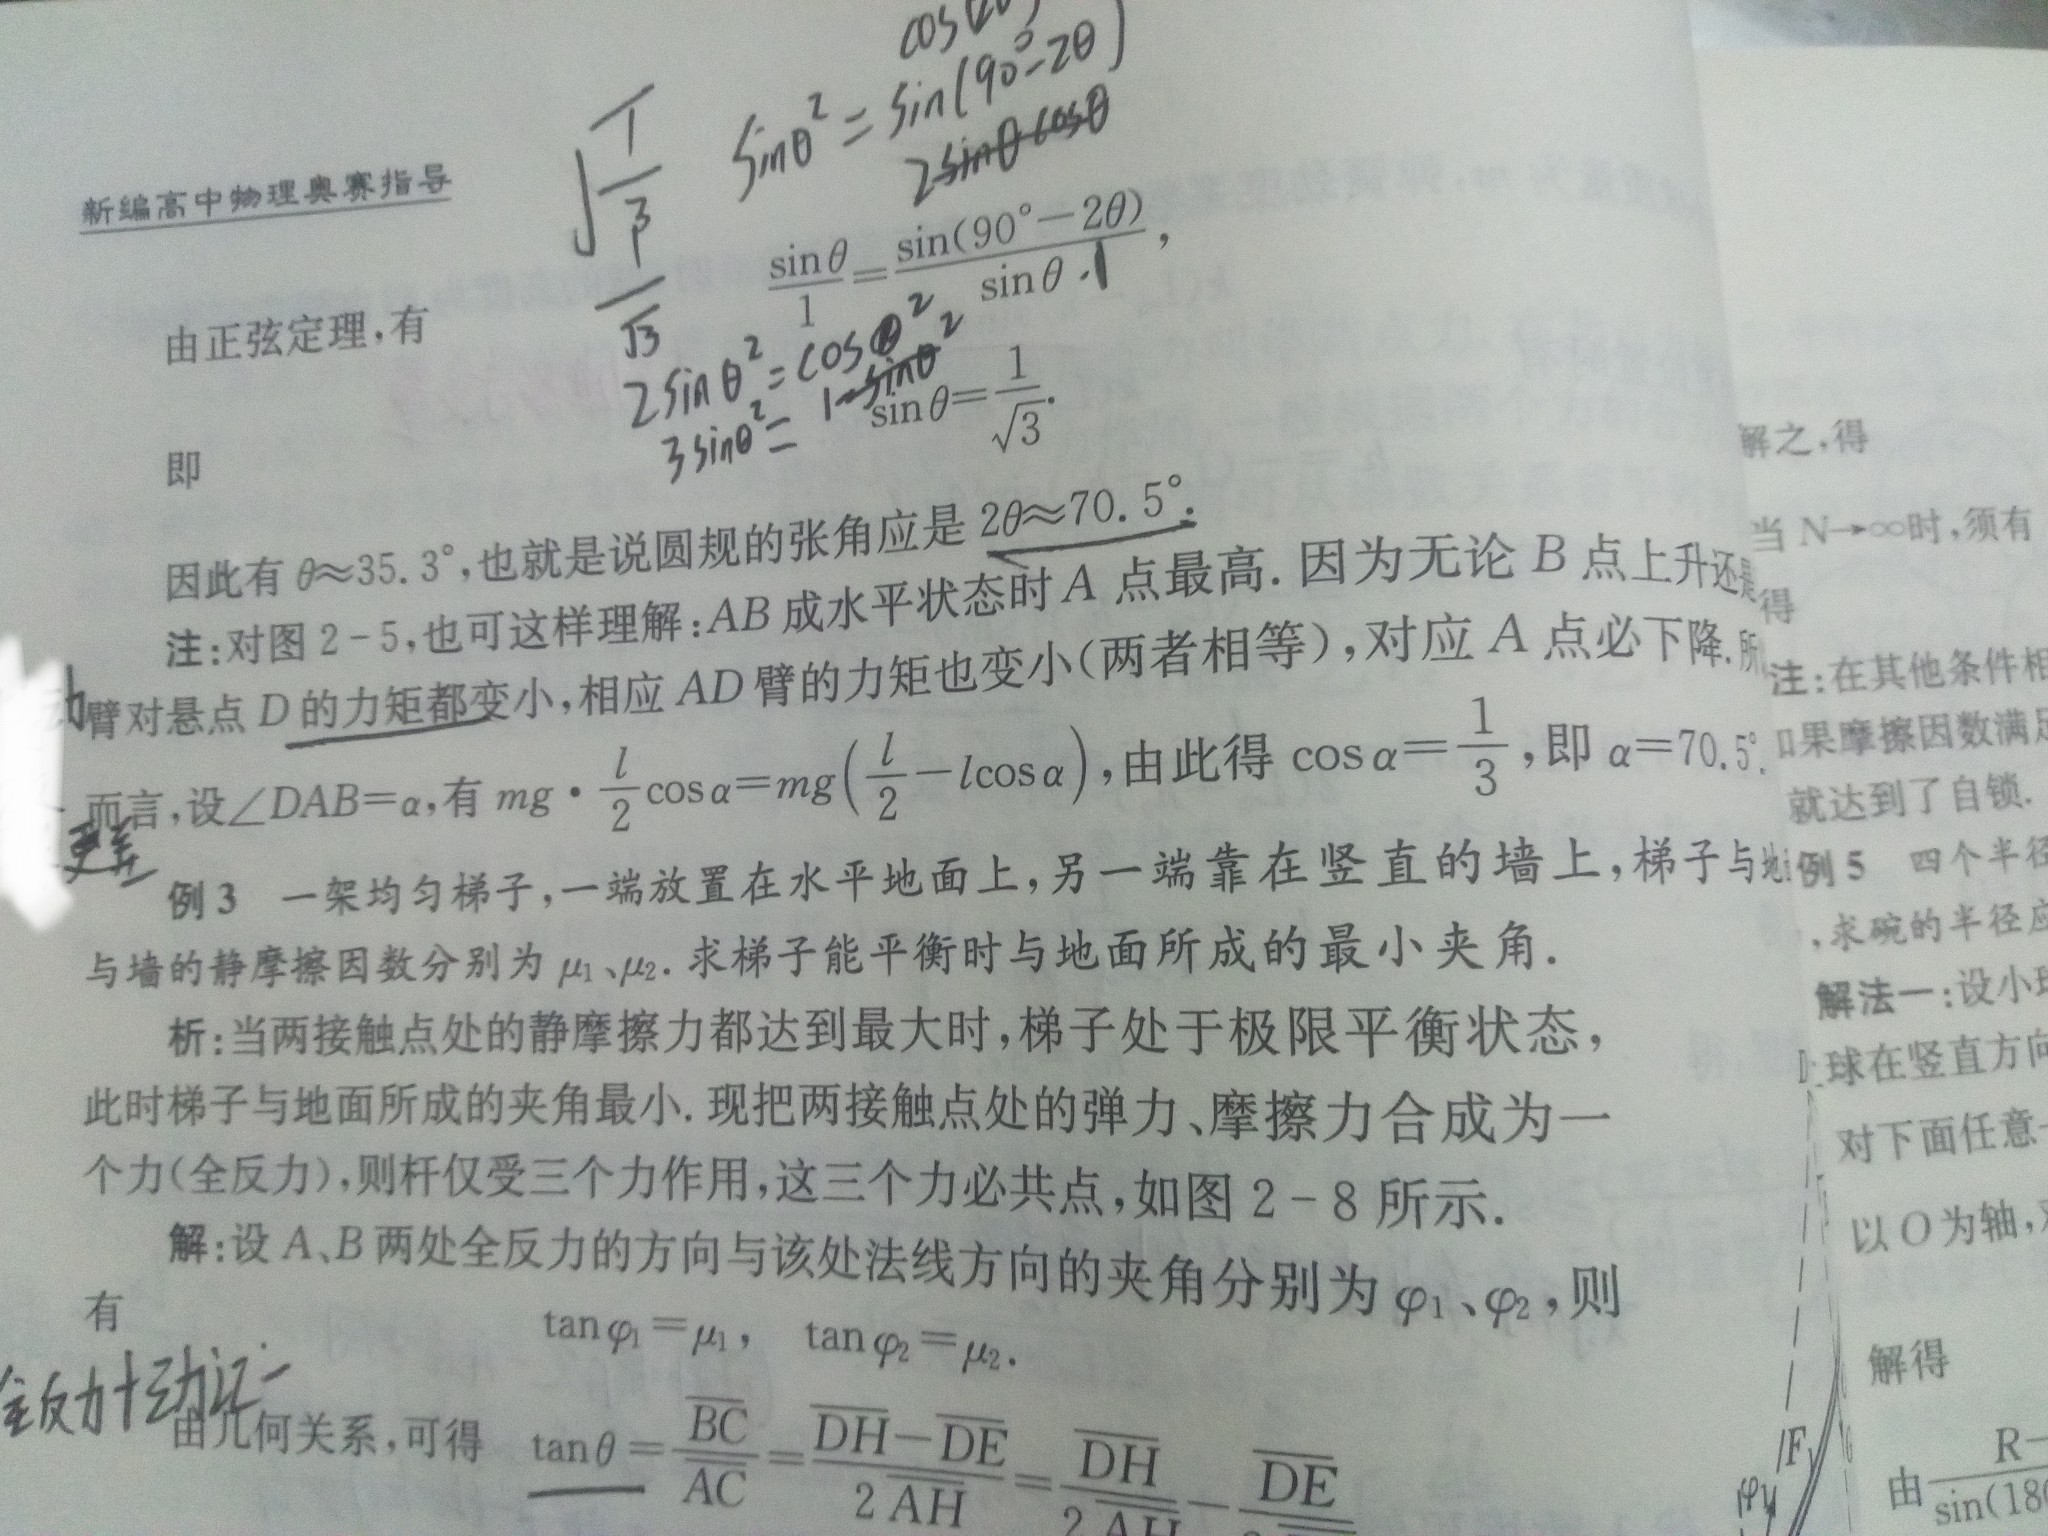 cos(2θ)
sinθ² = sin(90°-2θ)
2sinθcosθ
新编高中物理奥赛指导
由正弦定理,有 sinθ/1 = sin(90°-2θ)/sinθ · 1,
√3
2sinθ² = cosθ²
3sinθ² = 1-sinθ²
即 sinθ = 1/√3.
因此有 θ≈35.3°,也就是说圆规的张角应是 2θ≈70.5°.
注:对图 2-5,也可这样理解:AB 成水平状态时 A 点最高. 因为无论 B 点上升还是
臂对悬点 D 的力矩都变小,相应 AD 臂的力矩也变小(两者相等),对应 A 点必下降.所
而言,设∠DAB=α,有 mg · l/2 cosα = mg(l/2 - lcosα),由此得 cosα = 1/3,即 α=70.5°.
例 3 一架均匀梯子,一端放置在水平地面上,另一端靠在竖直的墙上,梯子与地
与墙的静摩擦因数分别为 μ₁、μ₂. 求梯子能平衡时与地面所成的最小夹角.
析:当两接触点处的静摩擦力都达到最大时,梯子处于极限平衡状态,
此时梯子与地面所成的夹角最小. 现把两接触点处的弹力、摩擦力合成为一
个力(全反力),则杆仅受三个力作用,这三个力必共点,如图 2-8 所示.
解:设 A、B 两处全反力的方向与该处法线方向的夹角分别为 φ₁、φ₂,则
有
tanφ₁=μ₁, tanφ₂=μ₂.
全反力+
由几何关系,可得 tanθ = BC/AC = (DH-DE)/2AH = DH/2AH - DE
解之,得
当 N→∞时,须有
得
注:在其他条件相
果摩擦因数满足
就达到了自锁.
例 5 四个半径
,求碗的半径应
解法一:设小球
球在竖直方向
对下面任意一
以 O 为轴,对
解得
F₁
φ₁
由 R-
sin(180